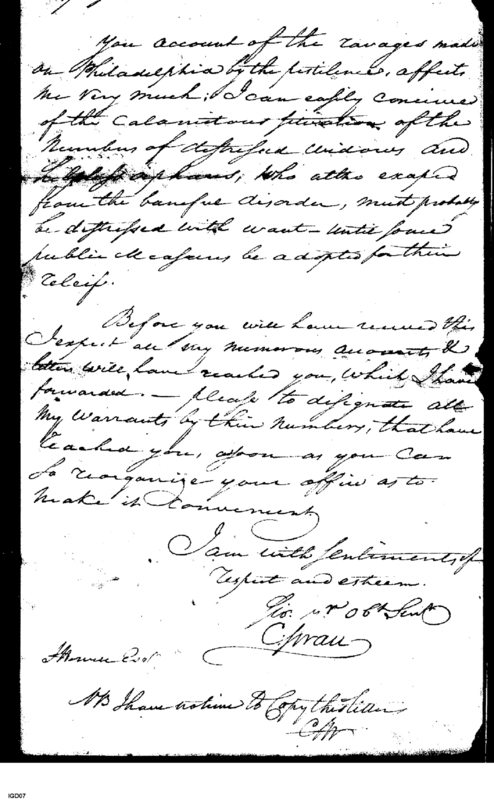 You account of the ravages made
on Philadelphia by the pestilence, affects
me very much; I can easily conceive
of the Calamitous situation of the
Numbers of distressed widows and
helpless orphans; who altho exaped
from the baneful disorder, must probably
be distressed with want - until some
public Measures be adopted for their
releif.
Before you will have received this
I expect all my numerous accounts &
letters will have reached you, which I have
forwarded. - please to designate all
my warrants by their numbers, that have
reached you, as soon as you can
so reorganize your office as to
make it convenient
I am with sentiments of
respect and esteem.
Sir. yr Obt Servt
C. Swan
J Howell Esqr
NB I have no time to Copy this letter
CS
IGD07